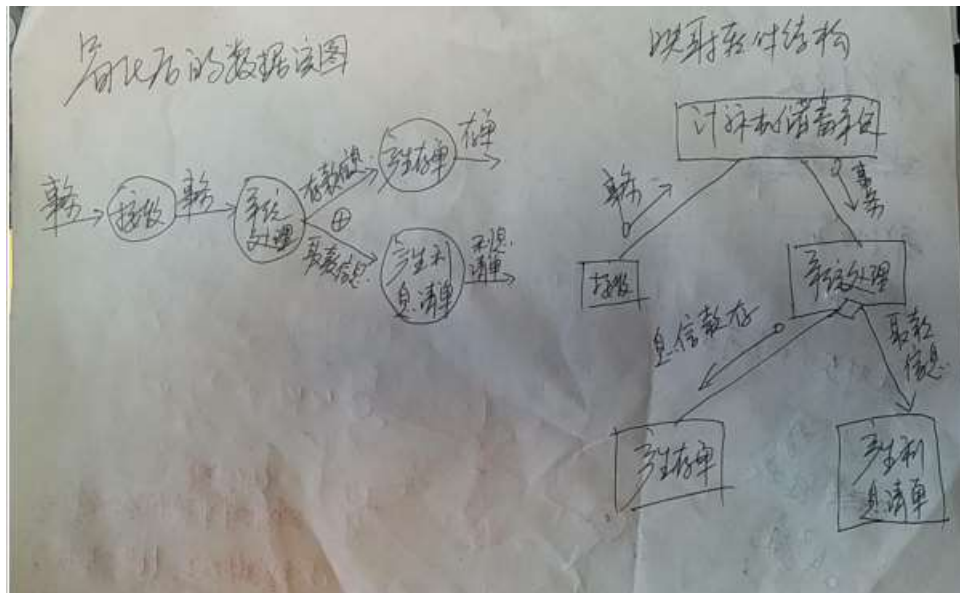 简化后的数据流图
事务
接收
事务
系统
处理
存款信息
⊕
取款信息
产生存单
存单
产生利
息清单
利息
清单
映射软件结构
计算机储蓄系统
事务
事务
接收
系统处理
息信款存
取款
信息
产生存单
产生利
息清单